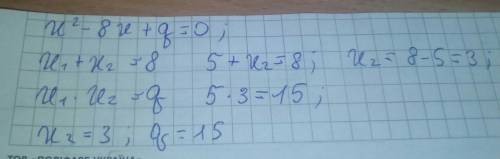 x² - 8x + q = 0;
x₁ + x₂ = 8   5 + x₂ = 8;   x₂ = 8 - 5 = 3;
x₁ · x₂ = q   5 · 3 = 15;
x₂ = 3; q = 15